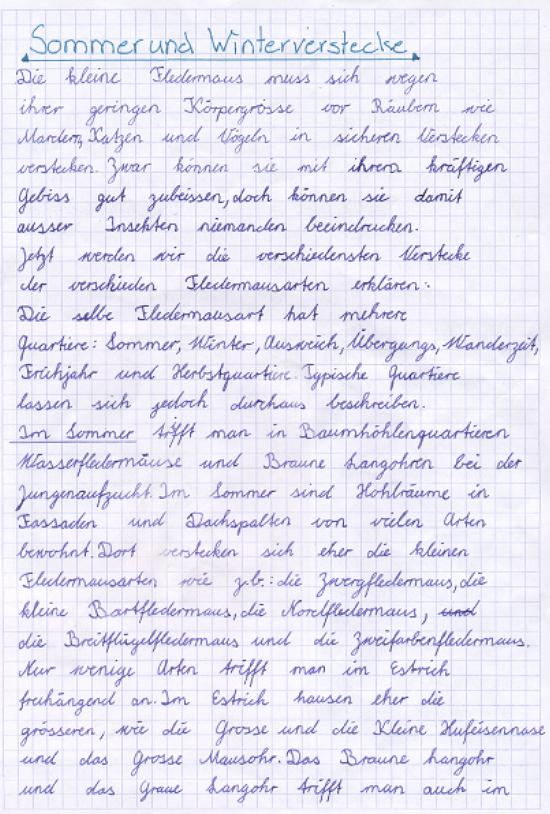 Sommer und Winterverstecke
Die kleine Fledermaus muss sich wegen
ihrer geringen Körpergrösse vor Räubern wie
Mardern, Katzen und Vögeln in sicheren Verstecken
verstecken. Zwar können sie mit ihrem kräftigen
Gebiss gut zubeissen, doch können sie damit
ausser Insekten niemanden beeindrucken.
Jetzt werden wir die verschiedensten Verstecke
der verschieden Fledermausarten erklären:
Die selbe Fledermausart hat mehrere
Quartiere: Sommer, Winter, Ausweich, Übergangs, Wanderzeit,
Frühjahr und Herbstquartiere. Typische Quartiere
lassen sich jedoch durchaus beschreiben.
Im Sommer trifft man in Baumhöhlenquartieren
Wasserfledermäuse und Braune Langohren bei der
Jungenaufzucht. Im Sommer sind Hohlräume in
Fassaden und Dachspalten von vielen Arten
bewohnt. Dort verstecken sich eher die kleinen
Fledermausarten wie z.b.: die Zwergfledermaus, die
kleine Bartfledermaus, die Nordfledermaus, und
die Breitflügelfledermaus und die Zweifarbenfledermaus.
Nur wenige Arten trifft man im Estrich
freihängend an. Im Estrich hausen eher die
grösseren, wie die Grosse und die Kleine Hufeisennase
und das Grosse Mausohr. Das Braune Langohr
und das Graue Langohr trifft man auch im